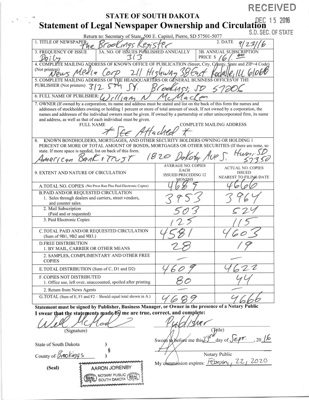 RECEIVED
DEC 15 2016
S.D. SEC. OF STATE
STATE OF SOUTH DAKOTA
Statement of Legal Newspaper Ownership and Circulation
Return to: Secretary of State, 500 E. Capitol, Pierre, SD 57501-5077
1. TITLE OF NEWSPAPER The Brookings Register
2. DATE 9/23/16
3. FREQUENCY OF ISSUE Daily
3A. NO. OF ISSUES PUBLISHED ANNUALLY 313
3B. ANNUAL SUBSCRIPTION PRICE $ 161
4. COMPLETE MAILING ADDRESS OF KNOWN OFFICE OF PUBLICATION (Street, City, County, State and ZIP+4 Code)
(Not printers)
News Media Corp 211 Highway 38 East Rochelle, IL 61068
5. COMPLETE MAILING ADDRESS OF THE HEADQUARTERS OF GENERAL BUSINESS OFFICES OF THE
PUBLISHER (Not printers) 312 5th St Brookings, SD 57006
6. FULL NAME OF PUBLISHER: William N McMacken
7. OWNER (If owned by a corporation, its name and address must be stated and list on the back of this form the names and
addresses of stockholders owning or holding 1 percent or more of total amount of stock. If not owned by a corporation, the
names and addresses of the individual owners must be given. If owned by a partnership or other unincorporated firm, its name
and address, as well as that of each individual must be given).
FULL NAME
COMPLETE MAILING ADDRESS
* See Attached *
8. KNOWN BONDHOLDERS, MORTGAGEES, AND OTHER SECURITY HOLDERS OWNING OR HOLDING 1
PERCENT OR MORE OF TOTAL AMOUNT OF BONDS, MORTGAGES OR OTHER SECURITIES (If there are none, so
state. If more space is needed, list on back of this form.
American Bank & Trust 1820 Dakota Ave S. Huron, SD
57350
9. EXTENT AND NATURE OF CIRCULATION
AVERAGE NO. COPIES
EACH
ISSUED PRECEEDING 12
MONTHS
ACTUAL NO. COPIES
ISSUED
NEAREST TO FILING DATE
A. TOTAL NO. COPIES (Net Press Run Plus Paid Electronic Copies) 4689 4666
B. PAID AND/OR REQUESTED CIRCULATION
1. Sales through dealers and carriers, street vendors,
and counter sales. 3953 3964
2. Mail Subscription
(Paid and or requested) 503 524
3. Paid Electronic Copies 125 115
C. TOTAL PAID AND/OR REQUESTED CIRCULATION
(Sum of 9B1, 9B2 and 9B3.) 4581 4603
D. FREE DISTRIBUTION
1. BY MAIL, CARRIER OR OTHER MEANS 28 19
2. SAMPLES, COMPLIMENTARY AND OTHER FREE
COPIES
E. TOTAL DISTRIBUTION (Sum of C, D1 and D2) 4609 4622
F. COPIES NOT DISTRIBUTED
1. Office use, left over, unaccounted, spoiled after printing 80 44
2. Return from News Agents
G. TOTAL (Sum of E, F1 and F2 - Should equal total shown in A.) 4689 4666
Statement must be signed by Publisher, Business Manager, or Owner in the presence of a Notary Public
I swear that the statements made by me are true, correct, and complete:
Publisher
(Signature)
(Title)
State of South Dakota )
Sworn to before me this day of Sept, 20 16
§
County of Brookings )
Notary Public
(Seal)
AARON JORENBY
NOTARY PUBLIC
SOUTH DAKOTA
SEAL
My commission expires: 22, 2020